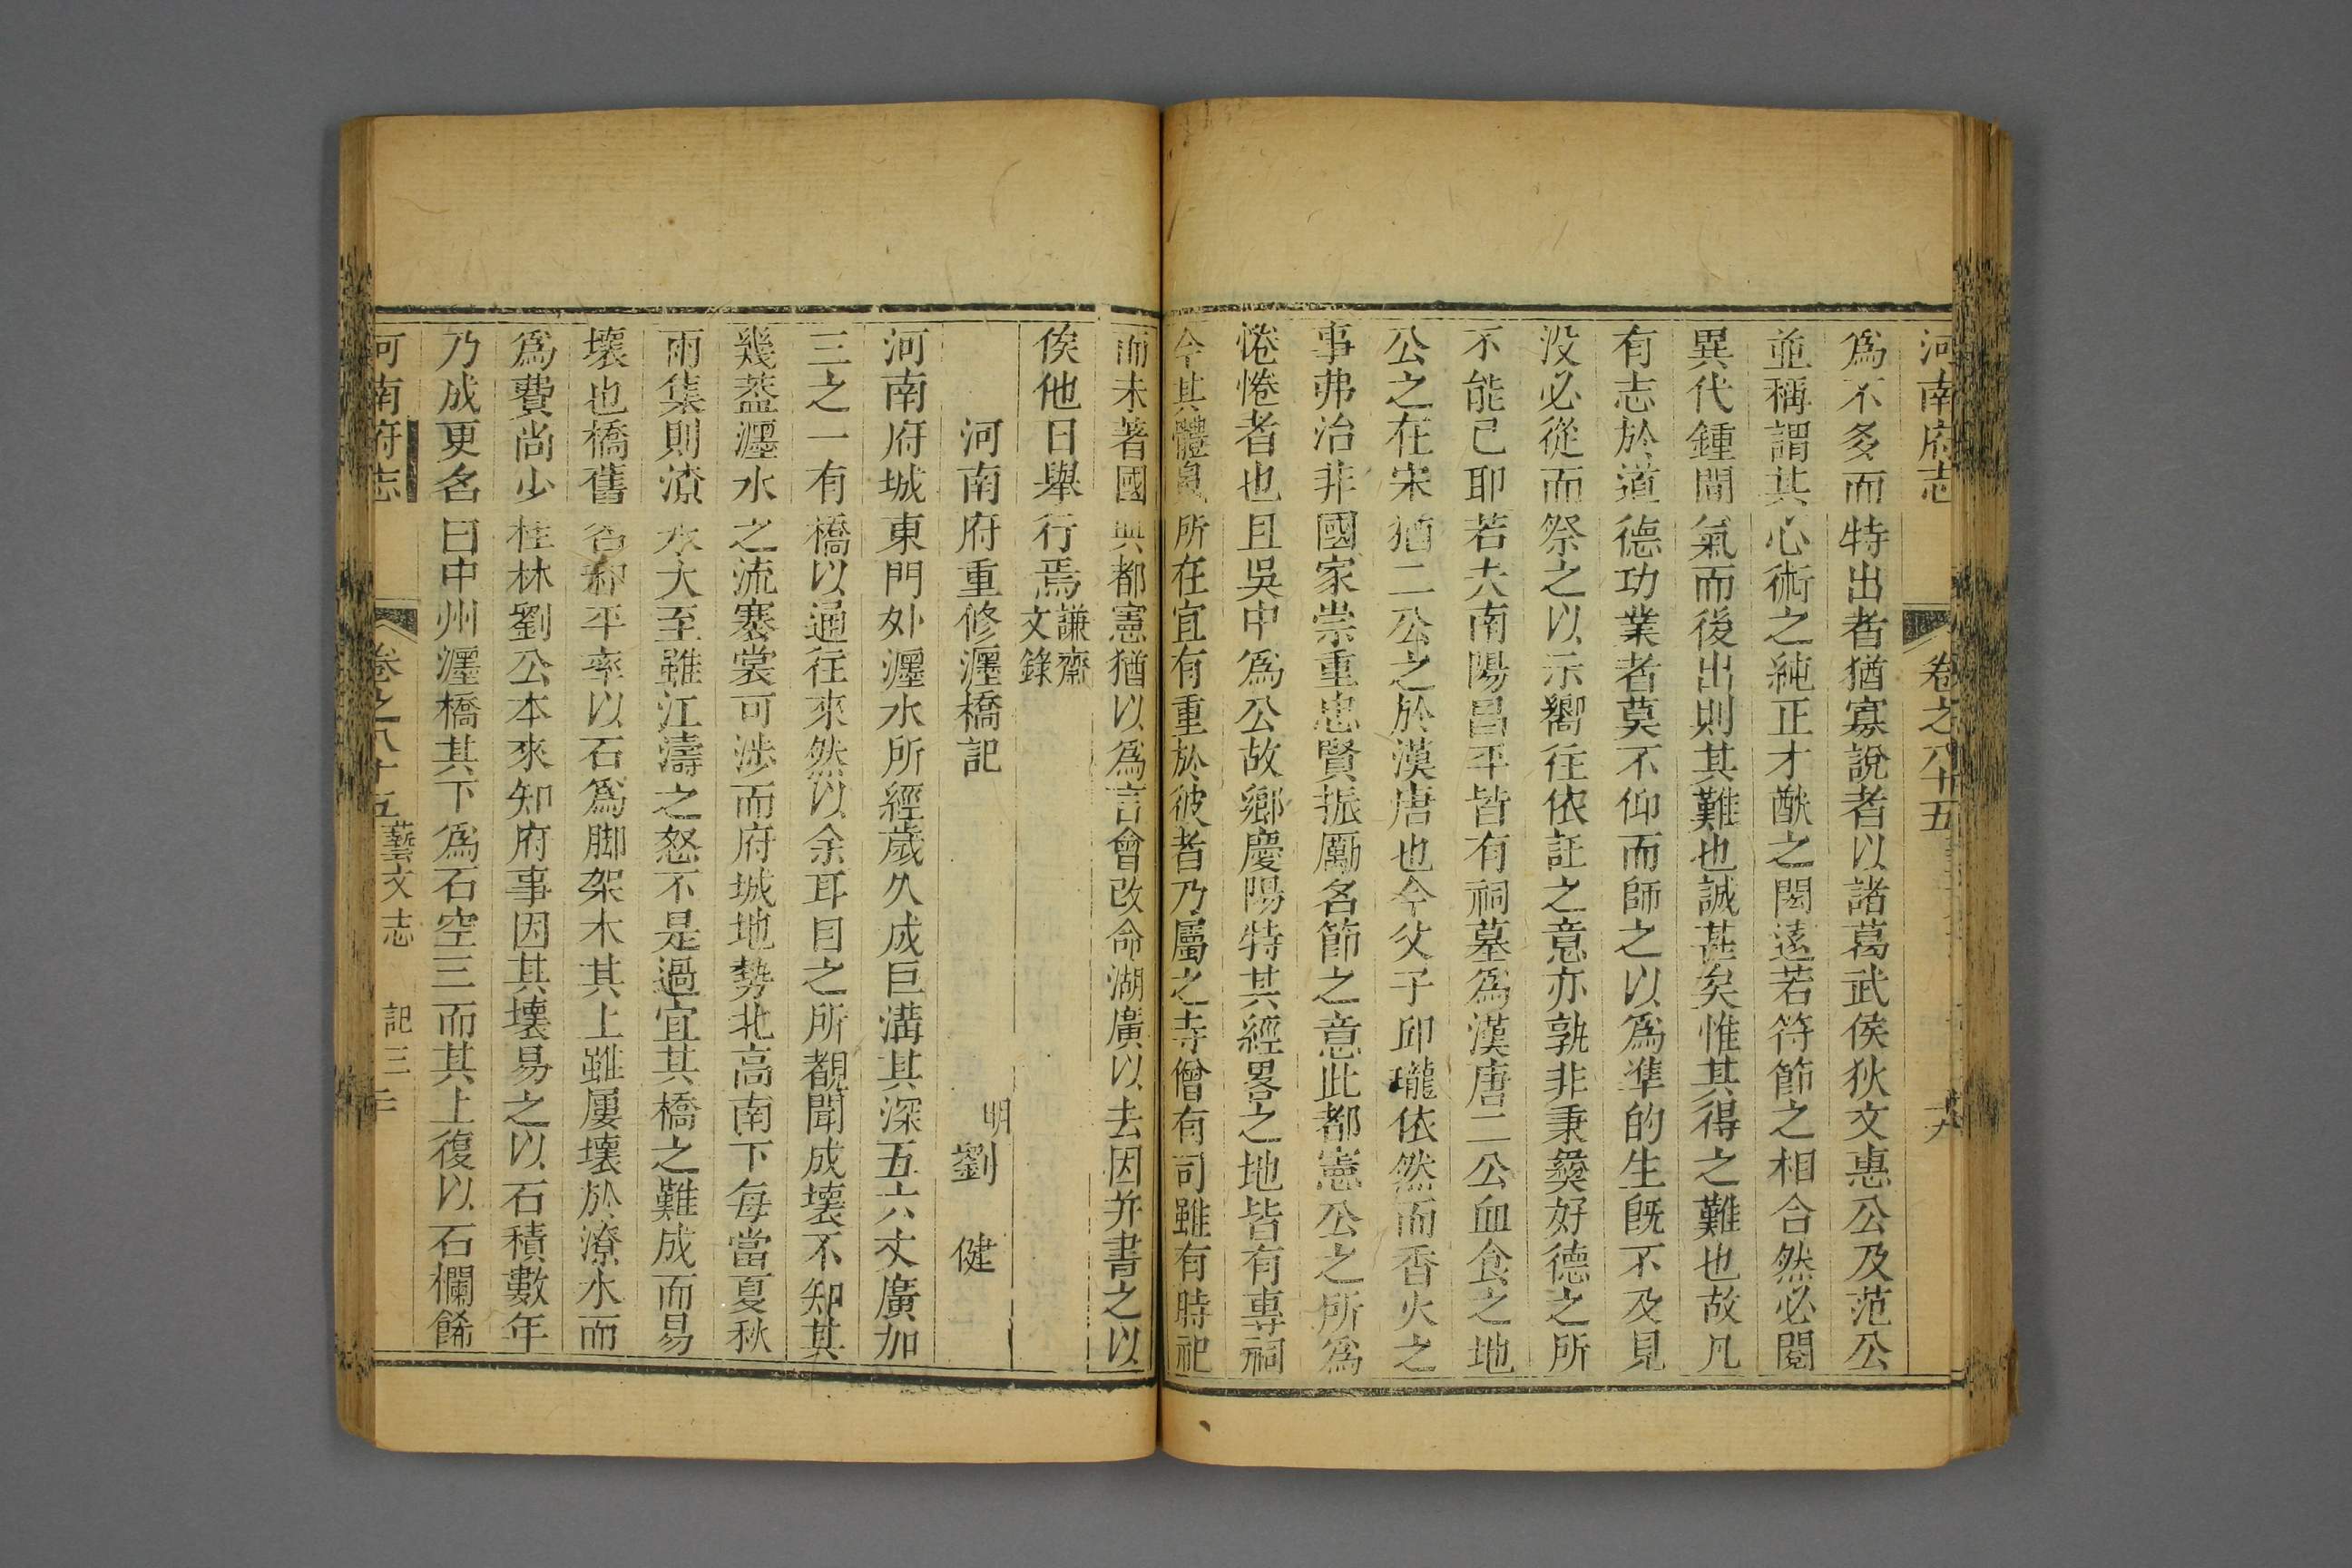 河南府志 卷之八十五
爲不多而特出者猶寡說者以諸葛武侯狄文惠公及范公
並稱謂其心術之純正才猷之閎遠若符節之相合然必閱
異代鍾間氣而後出則其難也誠甚矣惟其得之難也故凡
有志於道德功業者莫不仰而師之以爲準的生旣不及見
没必從而祭之以示嚮往依託之意亦孰非秉彛好德之所
不能已耶若夫南陽昌平皆有祠墓爲漢唐二公血食之地
公之在宋猶二公之於漢唐也今父子邱壠依然而香火之
事弗治非國家崇重忠賢振厲名節之意此都憲公之所爲
惓惓者也且吳中爲公故鄉慶陽特其經畧之地皆有專祠
今其體魄所在宜有重於彼者乃屬之寺僧有司雖有時祀
而未著國典都憲猶以爲言會改命湖廣以去因并書之以
俟他日舉行焉謙齋文錄
河南府重修瀍橋記
明劉健
河南府城東門外瀍水所經歲久成巨溝其深五六丈廣加
三之一有橋以通往來然以余耳目之所覩聞成壞不知其
幾葢瀍水之流褰裳可涉而府城地勢北高南下每當夏秋
雨集則潦水大至雖江濤之怒不是過宜其橋之難成而易
壞也橋舊名和平率以石爲脚架木其上雖屢壞於潦水而
爲費尚少桂林劉公本來知府事因其壞易之以石積數年
乃成更名曰中州瀍橋其下爲石空三而其上復以石欄餙
河南府志 卷之八十五藝文志 記三 二十